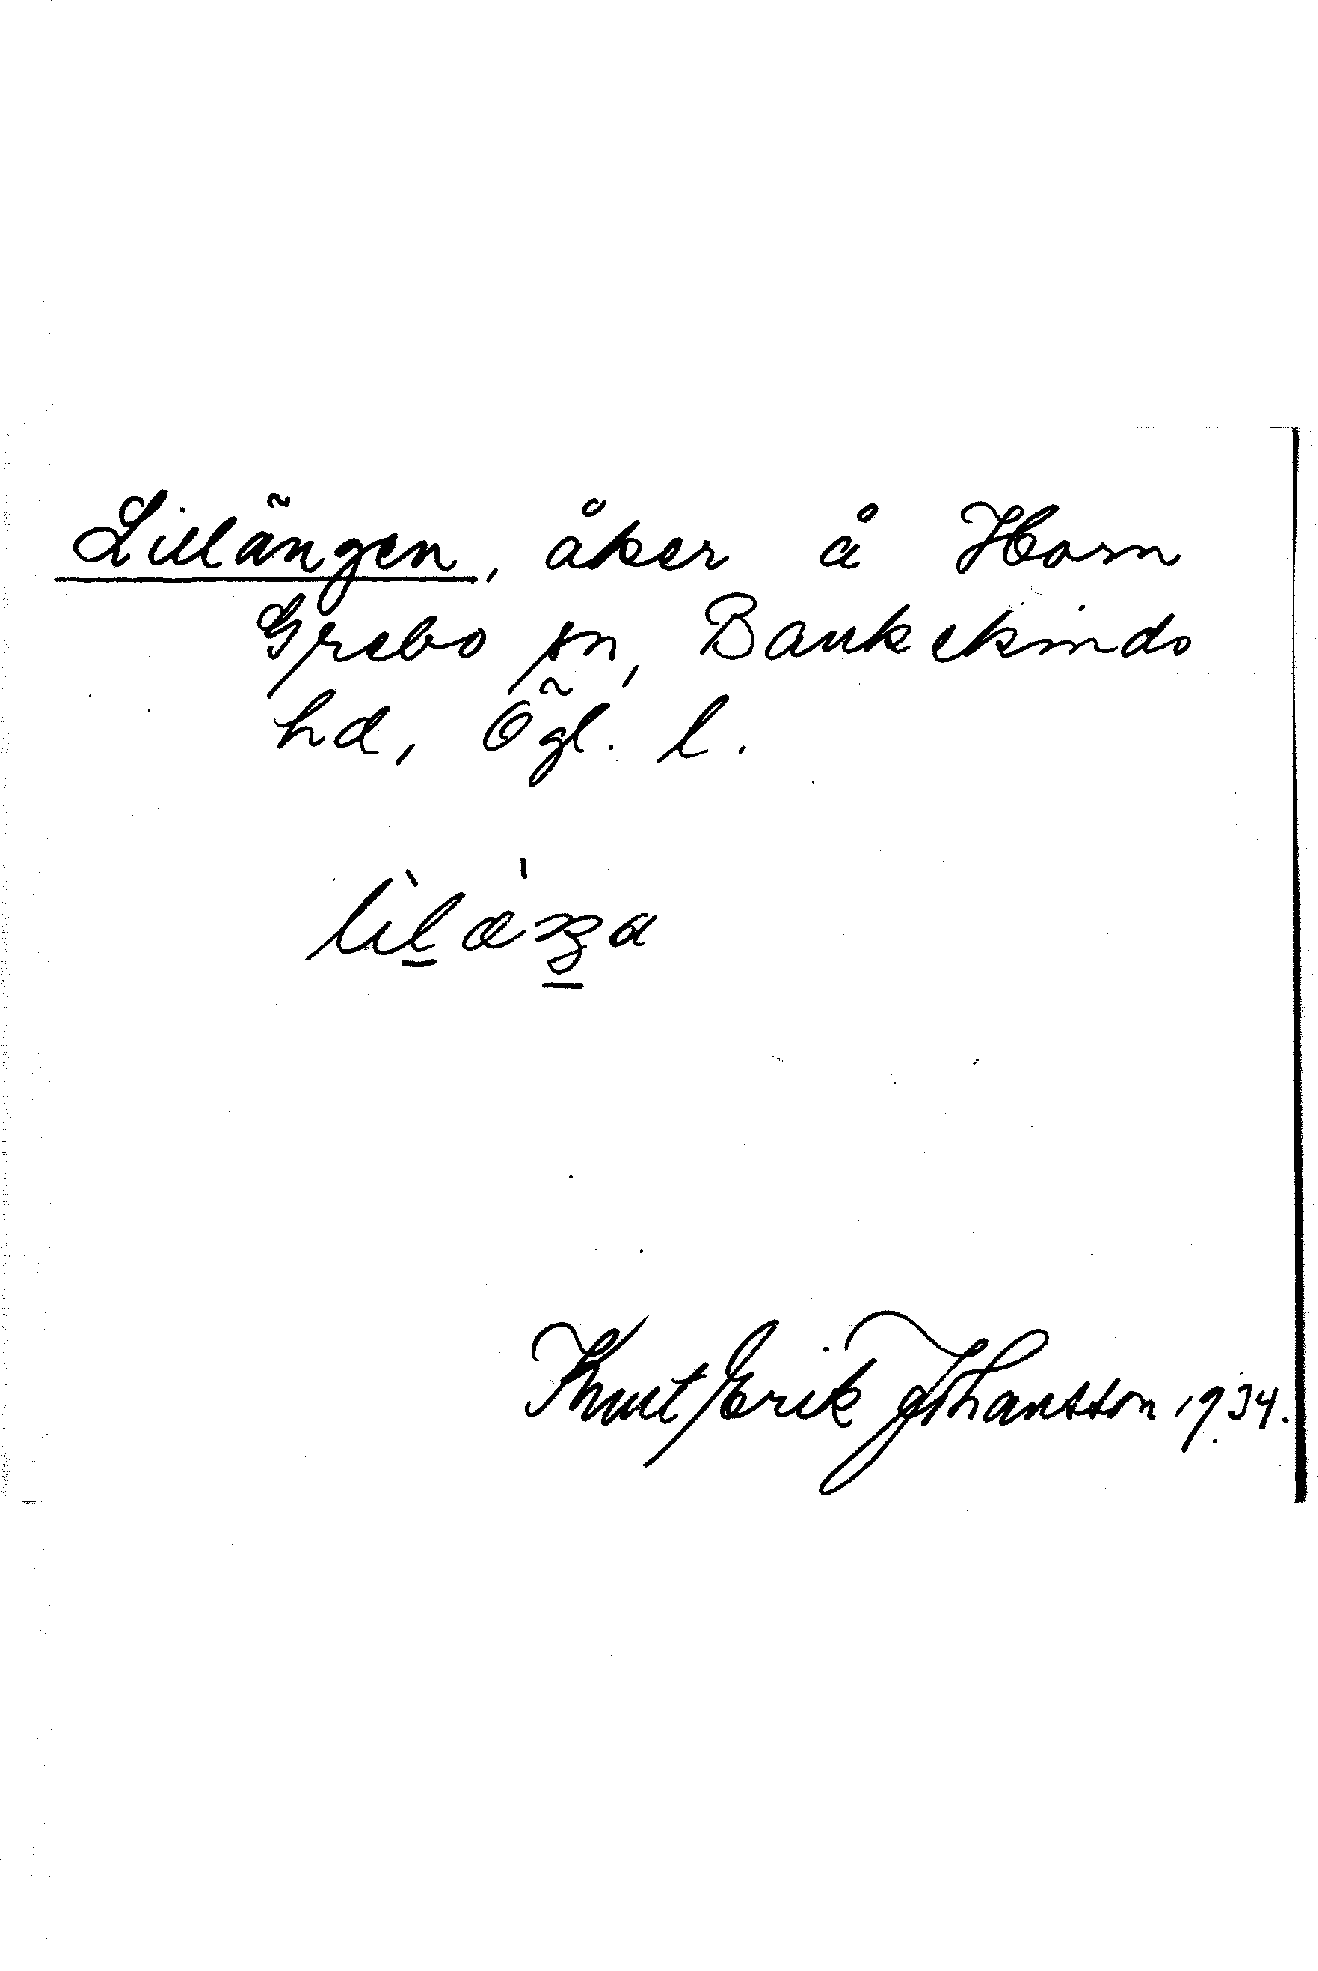 Lillängen, åker å Horn
Grebo sn, Bankekinds
hd, Ögl. l.
Knut Erik Johansson 1934.